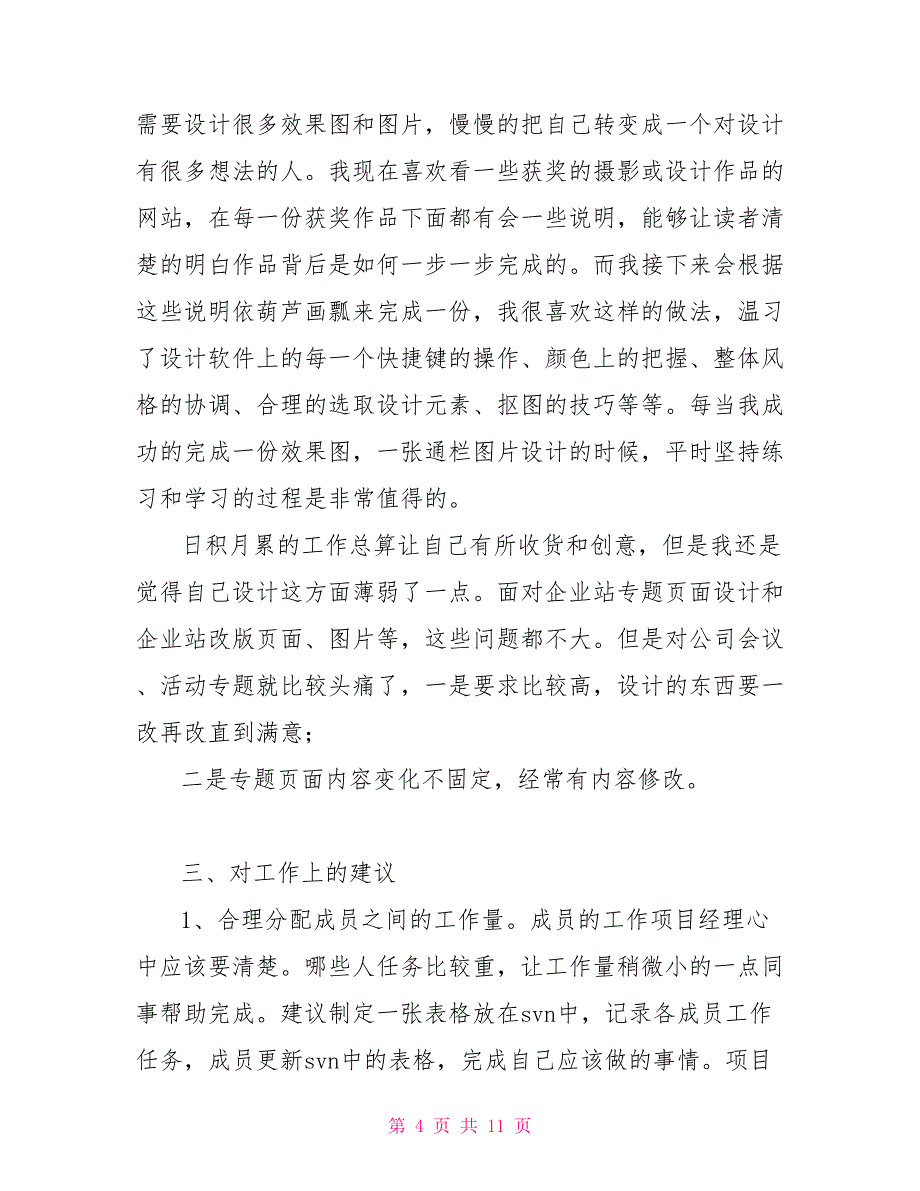 需要设计很多效果图和图片，慢慢的把自己转变成一个对设计
有很多想法的人。我现在喜欢看一些获奖的摄影或设计作品的
网站，在每一份获奖作品下面都有会一些说明，能够让读者清
楚的明白作品背后是如何一步一步完成的。而我接下来会根据
这些说明依葫芦画瓢来完成一份，我很喜欢这样的做法，温习
了设计软件上的每一个快捷键的操作、颜色上的把握、整体风
格的协调、合理的选取设计元素、抠图的技巧等等。每当我成
功的完成一份效果图，一张通栏图片设计的时候，平时坚持练
习和学习的过程是非常值得的。
日积月累的工作总算让自己有所收货和创意，但是我还是
觉得自己设计这方面薄弱了一点。面对企业站专题页面设计和
企业站改版页面、图片等，这些问题都不大。但是对公司会议
、活动专题就比较头痛了，一是要求比较高，设计的东西要一
改再改直到满意；
二是专题页面内容变化不固定，经常有内容修改。
三、对工作上的建议
1、合理分配成员之间的工作量。成员的工作项目经理心
中应该要清楚。哪些人任务比较重，让工作量稍微小的一点同
事帮助完成。建议制定一张表格放在svn中，记录各成员工作
任务，成员更新svn中的表格，完成自己应该做的事情。项目
第 4 页 共 11 页